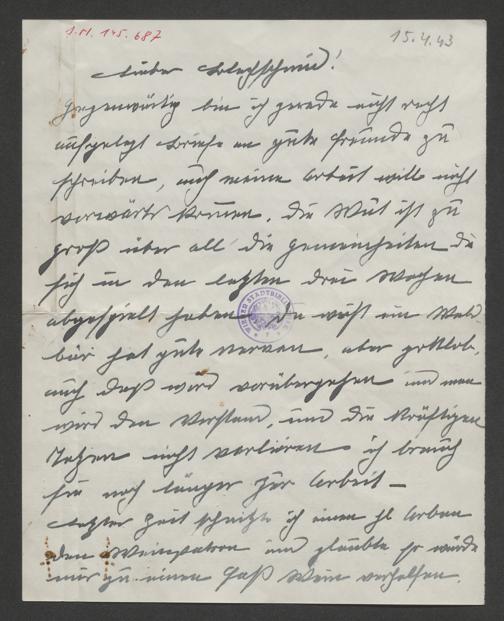 I.N. 145.687
15.4.43
Lieber Blechschmid!
Gegenwärtig bin ich gerade nicht recht
aufgelegt Briefe an gute Freunde zu
schreiben, auch meine Arbeit will nicht
vorwärts kommen. Die Wut ist zu
groß über all' die Gemeinheiten die
sich in den letzten drei Wochen
abgespielt haben du weißt ein Wald
bär hat gute Nerven, aber gottlob,
auch daß wird vorübergehen und man
wird den Verstand, und die kräftigen
Tatzen nicht verlieren ich brauch
sie noch länger zur Arbeit –
Letzter Zeit schnitzte ich einen hl Urban
den Weinpatron und glaubte er würde
mir zu einen Faß Wein verhelfen.
WIENER STADTBIBLIOTHEK